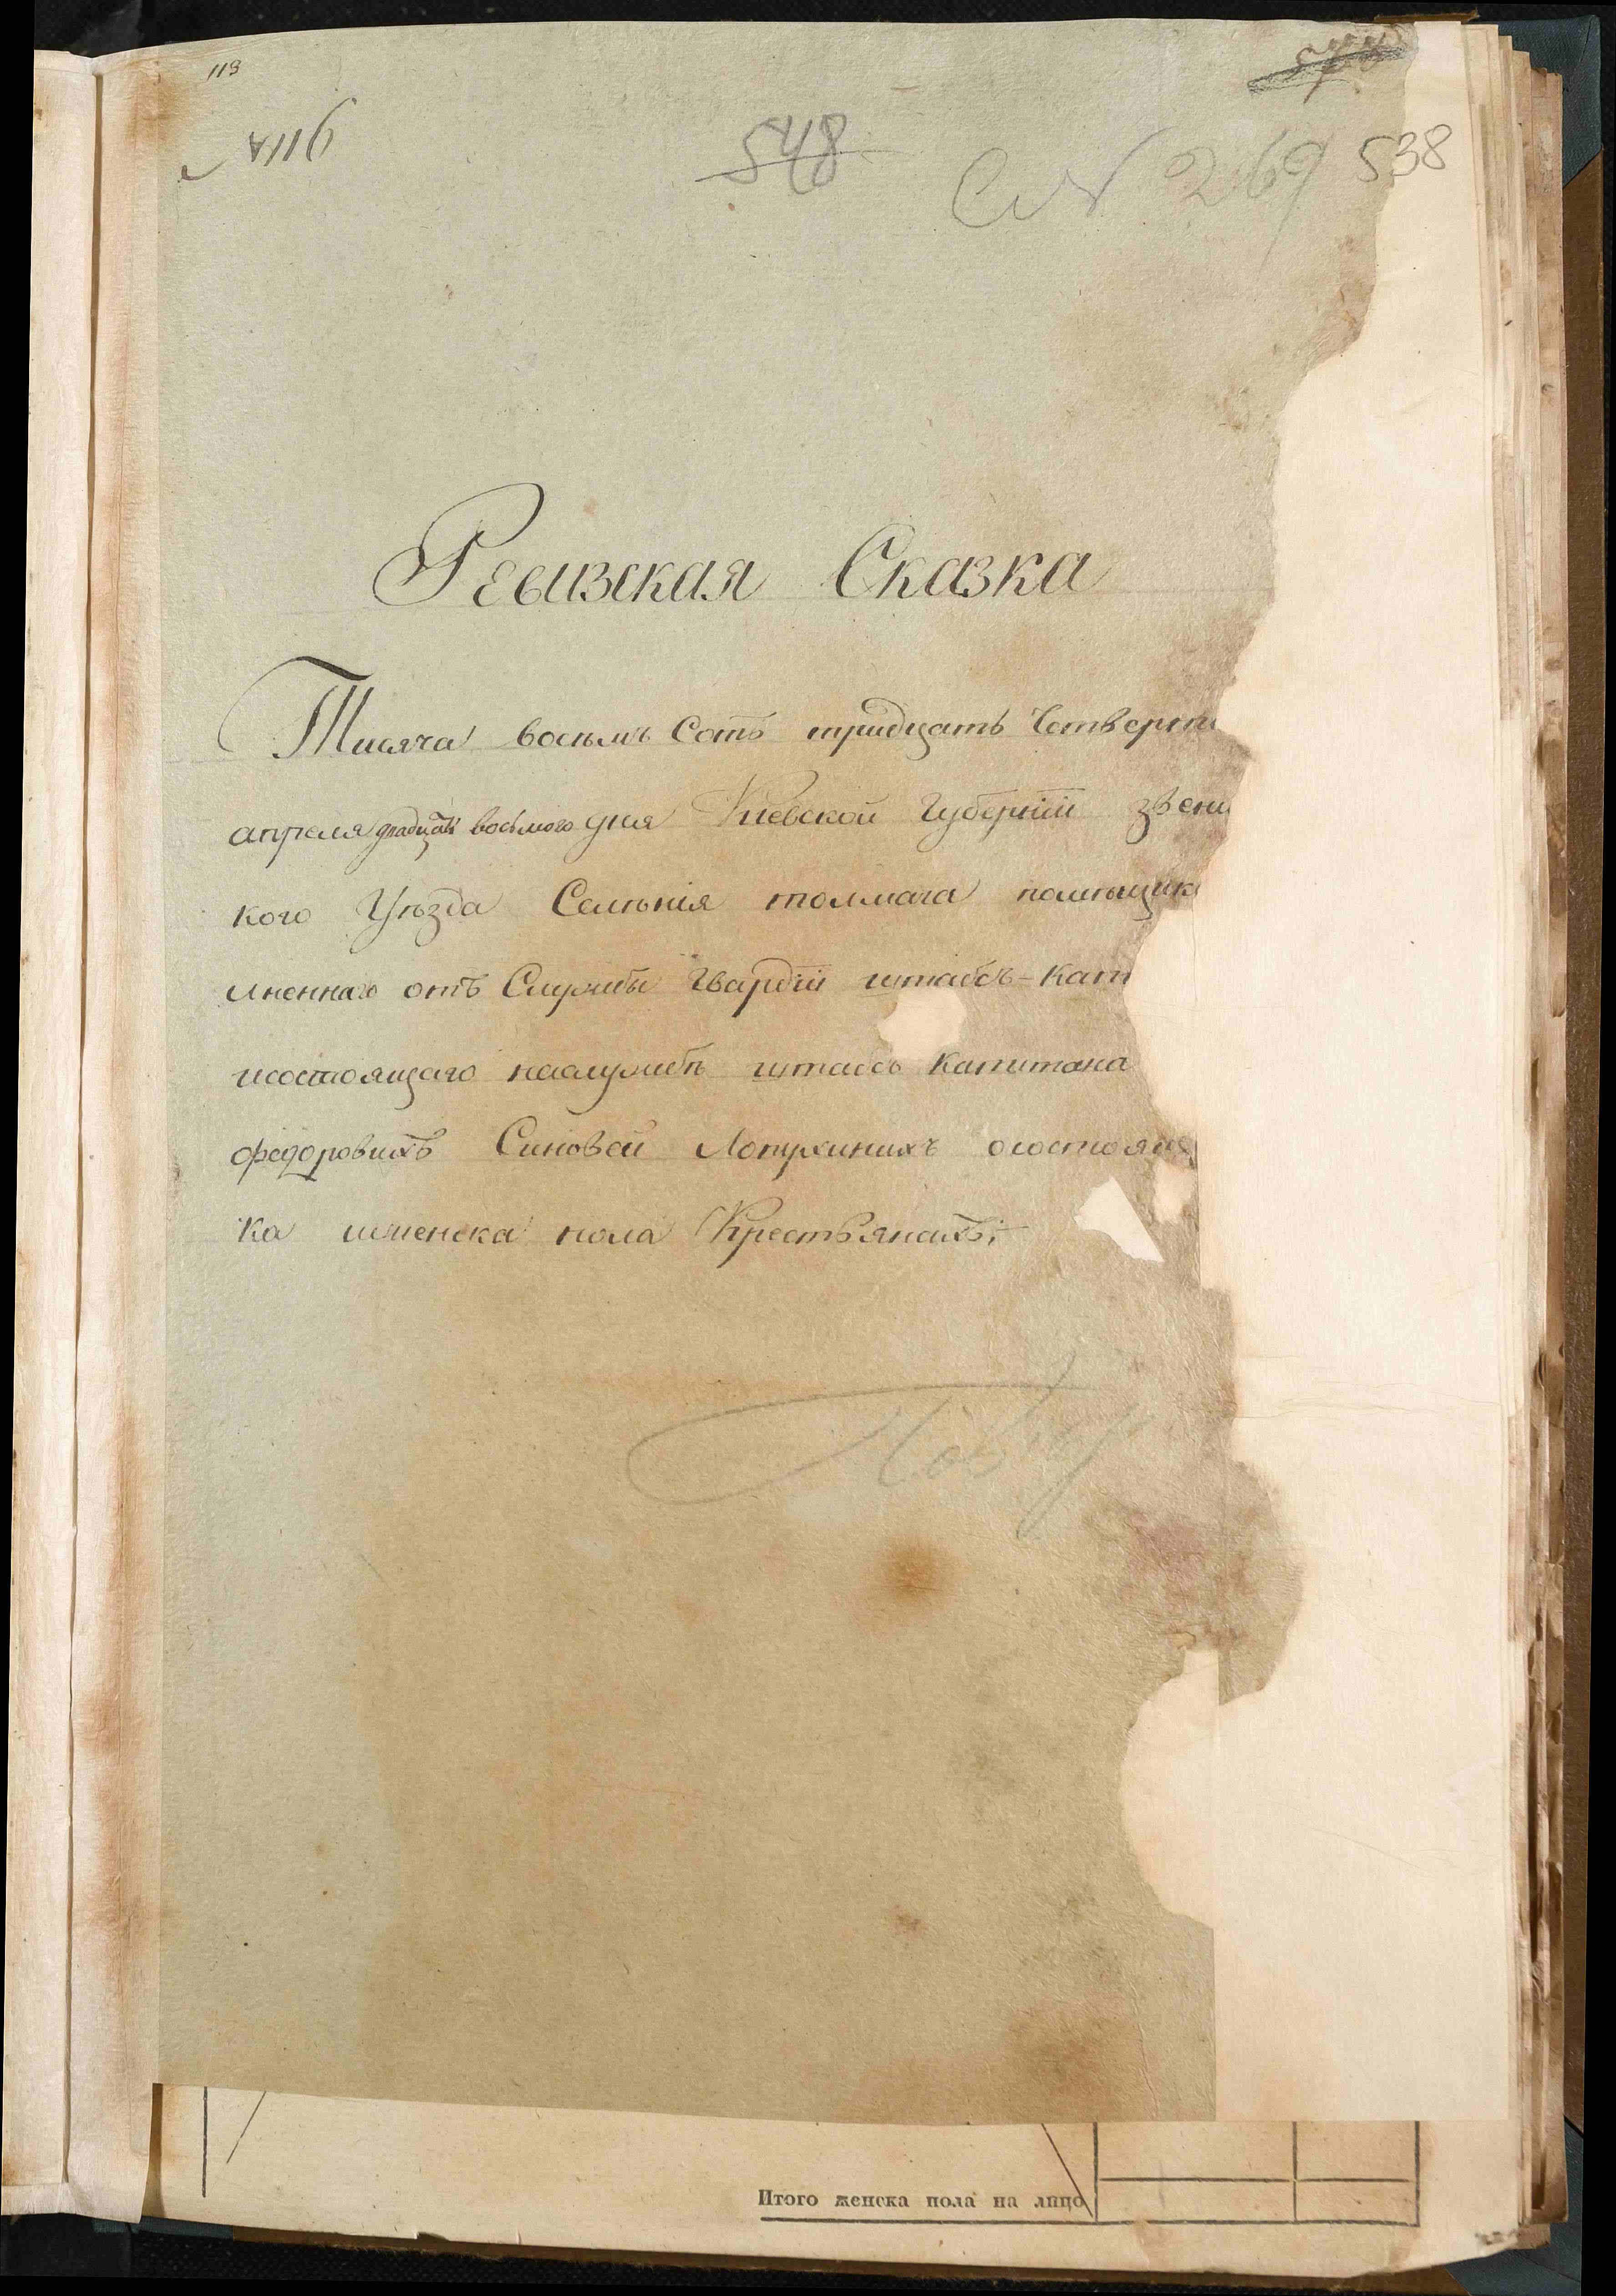 113
548
269 538
Ревизская Сказка
Тисяча восьмъ Сотъ тридцать Четверта
апреля двадцать восьмого дня Киевской Губерніи звени
кого Уѣзда Селѣнія толмача помѣщик
лненнаго отъ Службы Гвардіи штабсъ-Кап
исостоящаго наслужбѣ штабсъ Капитана
федоровихъ Синовей Лопухинихъ осостоящ
ка иженска пола Крестьянахъ:
Итого женска пола на лицо